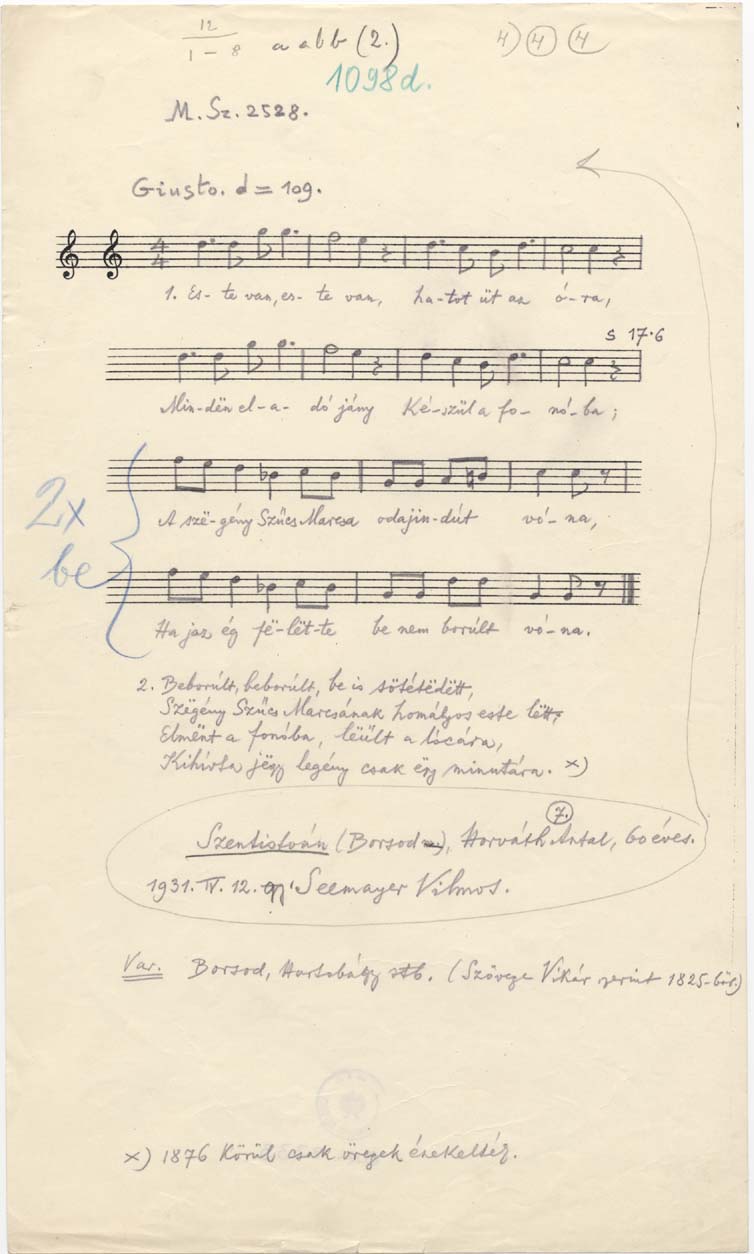 12
1 – 8 a a b b (2.) 4) 4 4
1098d.
M. Sz. 2528.
Giusto. d = 109.
4
4
1. Es- te van, es- te van, ha-tot üt az ó-ra,
s 17·6
Min-dën el-a- dó jány Ké-szül a fo- nó-ba;
2x
be
A szë-gény Szűcs Marcsa odajin-dút vó-na,
Ha jaz ég fë-lët-te be nem borúlt vó-na.
2. Beborúlt, beborúlt, be is sötétëdëtt,
Szëgény Szűcs Marcsának homályos este lëtt,
Elmënt a fonóba, lëűlt a lócára,
Kihívta jëgy legény csak ëgy minutára. x)
7.
Szentistván (Borsod m.), Horváth Antal, 60 éves.
1931. IV. 12. gy. Seemayer Vilmos.
Var. Borsod, Hortobágy stb. (Szövege Vikár szerint 1825-ből.)
x) 1876 körül csak öregek énekelték.